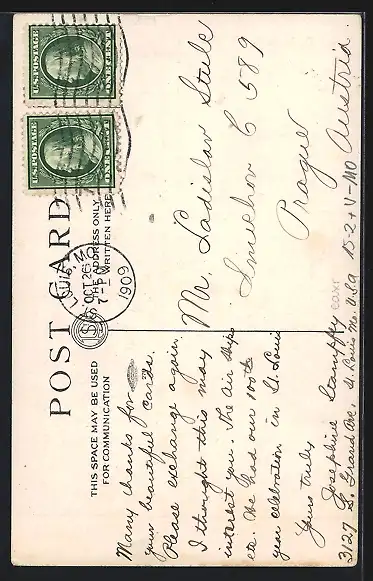 U.S. POSTAGE
ONE CENT
U.S. POSTAGE
ONE CENT
POST CARD
THIS SPACE MAY BE USED
FOR COMMUNICATION
THE ADDRESS ONLY
WRITTEN HERE
ST. LOUIS, MO.
OCT 26
7-PM
1909
Many thanks for
your beautiful cards.
Please exchange again.
I thought this may
interest you. The air ships
etc. We had our 100th
year celebration in St. Louis
Yours truly
Josephine
3127 S. Grand Ave. St. Louis Mo. USA
Mr. Ladislav Stulc
Smichov C 589
Prague
Austria
15-2+V-MO